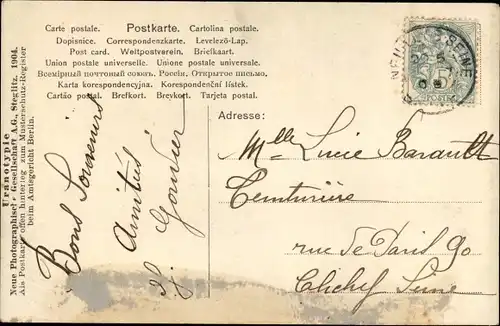 Carte postale. Postkarte. Cartolina postale.
Dopisnice. Correspondenzkarte. Levelező-Lap.
Post card. Weltpostverein. Briefkaart.
Union postale universelle. Unione postale universale.
Всемірный почтовый союзъ. Россія. Открытое письмо.
Karta korespondencyjna. Korespondenční lístek.
Cartão postal. Brefkort. Brevkort. Tarjeta postal.
Uranotypie
Neue Photographische Gesellschaft A.G., Steglitz. 1904.
Als Postkarte offen hinterleg zum Musterschutz-Register
beim Amtsgericht Berlin.
Bons Souvenirs
Amitiés
Adresse:
Melle Lucie Barault
Teinturière
rue de Paris 90
Clichy Seine
SEINE